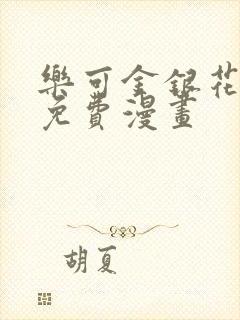 樂可金銀花
免費漫畫
胡夏